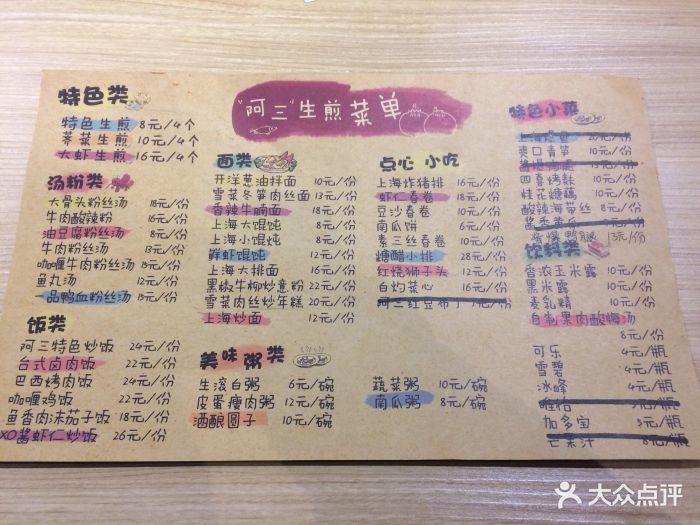 "阿三"生煎菜单
特色类
特色生煎 8元/4个
荠菜生煎 10元/4个
大虾生煎 16元/4个
汤粉类
大骨头粉丝汤 18元/份
牛肉酸辣粉 16元/份
油豆腐粉丝汤 8元/份
牛肉粉丝汤 13元/份
咖喱牛肉粉丝汤 15元/份
鱼丸汤 12元/份
一品鸭血粉丝汤 18元/份
饭类
阿三特色炒饭 24元/份
台式卤肉饭 22元/份
巴西烤肉饭 24元/份
咖喱鸡饭 22元/份
鱼香肉沫茄子饭 18元/份
XO酱虾仁炒饭 26元/份
面类
开洋葱油拌面 10元/份
雪菜冬笋肉丝面 13元/份
香辣牛腩面 18元/份
上海大馄饨 8元/份
上海小馄饨 8元/份
鲜虾馄饨 12元/份
上海大排面 16元/份
黑椒牛柳炒意粉 22元/份
雪菜肉丝炒年糕 20元/份
上海炒面 12元/份
美味粥类
生滚白粥 6元/碗
皮蛋瘦肉粥 12元/碗
酒酿圆子 10元/碗
蔬菜粥 10元/碗
南瓜粥 8元/碗
点心 小吃
上海炸猪排 16元/份
虾仁春卷 18元/份
豆沙春卷 10元/份
南瓜饼 8元/份
素三丝春卷 10元/份
糖醋小排 28元/份
红烧狮子头 12元/份
白灼菜心 16元/份
阿三红豆布丁 7元/份
特色小菜
上海 20元/份
爽口青笋 10元/份
13元/份
四喜烤麸 10元/份
桂花糖藕 10元/份
酸辣海带丝 8元/份
酱爆鸭腿 13元/份
饮料类
香浓玉米露 10元/份
黑米露 10元/份
麦乳精 10元/份
自制果肉酸梅汤
8元/份
可乐 4元/瓶
雪碧 4元/瓶
冰峰 4元/瓶
唯怡 5元/瓶
加多宝 5元/瓶
芒果汁 8元/瓶
大众点评